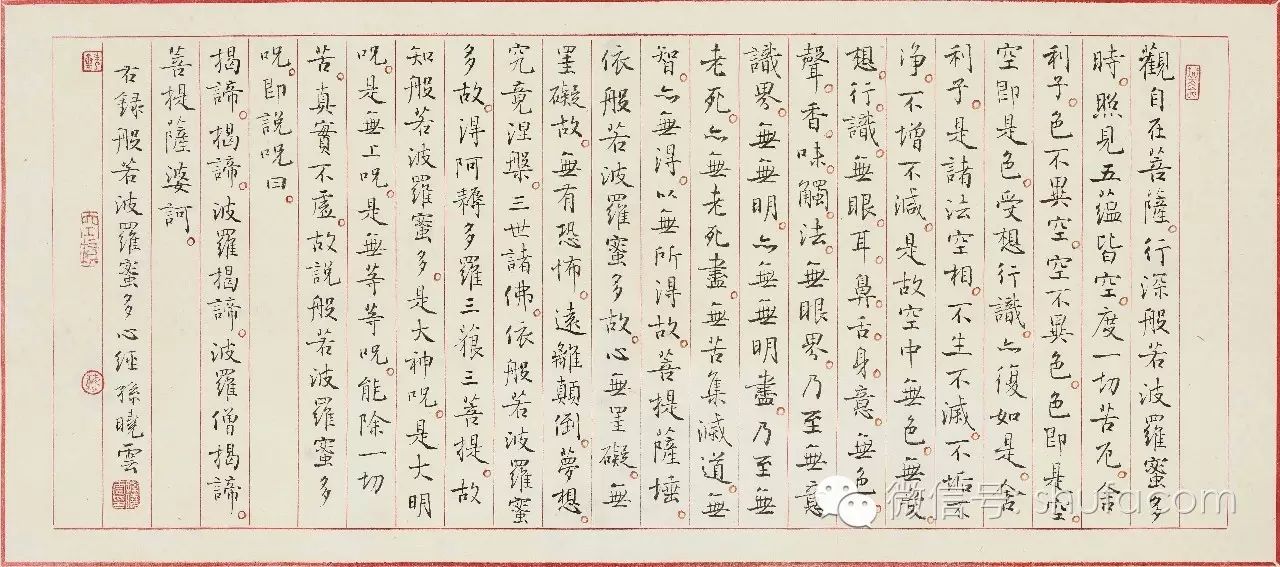 觀自在菩薩。行深般若波羅蜜多
時。照見五蕴皆空。度一切苦厄。舍
利子。色不異空。空不異色。色即是空。
空即是色。受想行識。亦復如是。舍
利子。是諸法空相。不生不滅。不垢不
净。不增不減。是故空中無色。無受
想行識。無眼耳鼻舌身意。無色
聲。香。味。觸。法。無眼界。乃至無意
識界。無無明。亦無無明盡。乃至無
老死。亦無老死盡。無苦集滅道。無
智。亦無得。以無所得故。菩提薩埵
依般若波羅蜜多故。心無罣礙。無
罣礙故。無有恐怖。遠離顛倒。夢想。
究竟涅槃。三世諸佛。依般若波羅蜜
多故。得阿耨多羅三藐三菩提。故
知般若波羅蜜多。是大神呪。是大明
呪。是無上呪。是無等等呪。能除一切
苦。真實不虛。故説般若波羅蜜多
呪。即説呪曰。
揭諦。揭諦。波羅揭諦。波羅僧揭諦。
菩提薩婆訶。
右録般若波羅蜜多心經孫曉雲
微信号: shufa.com